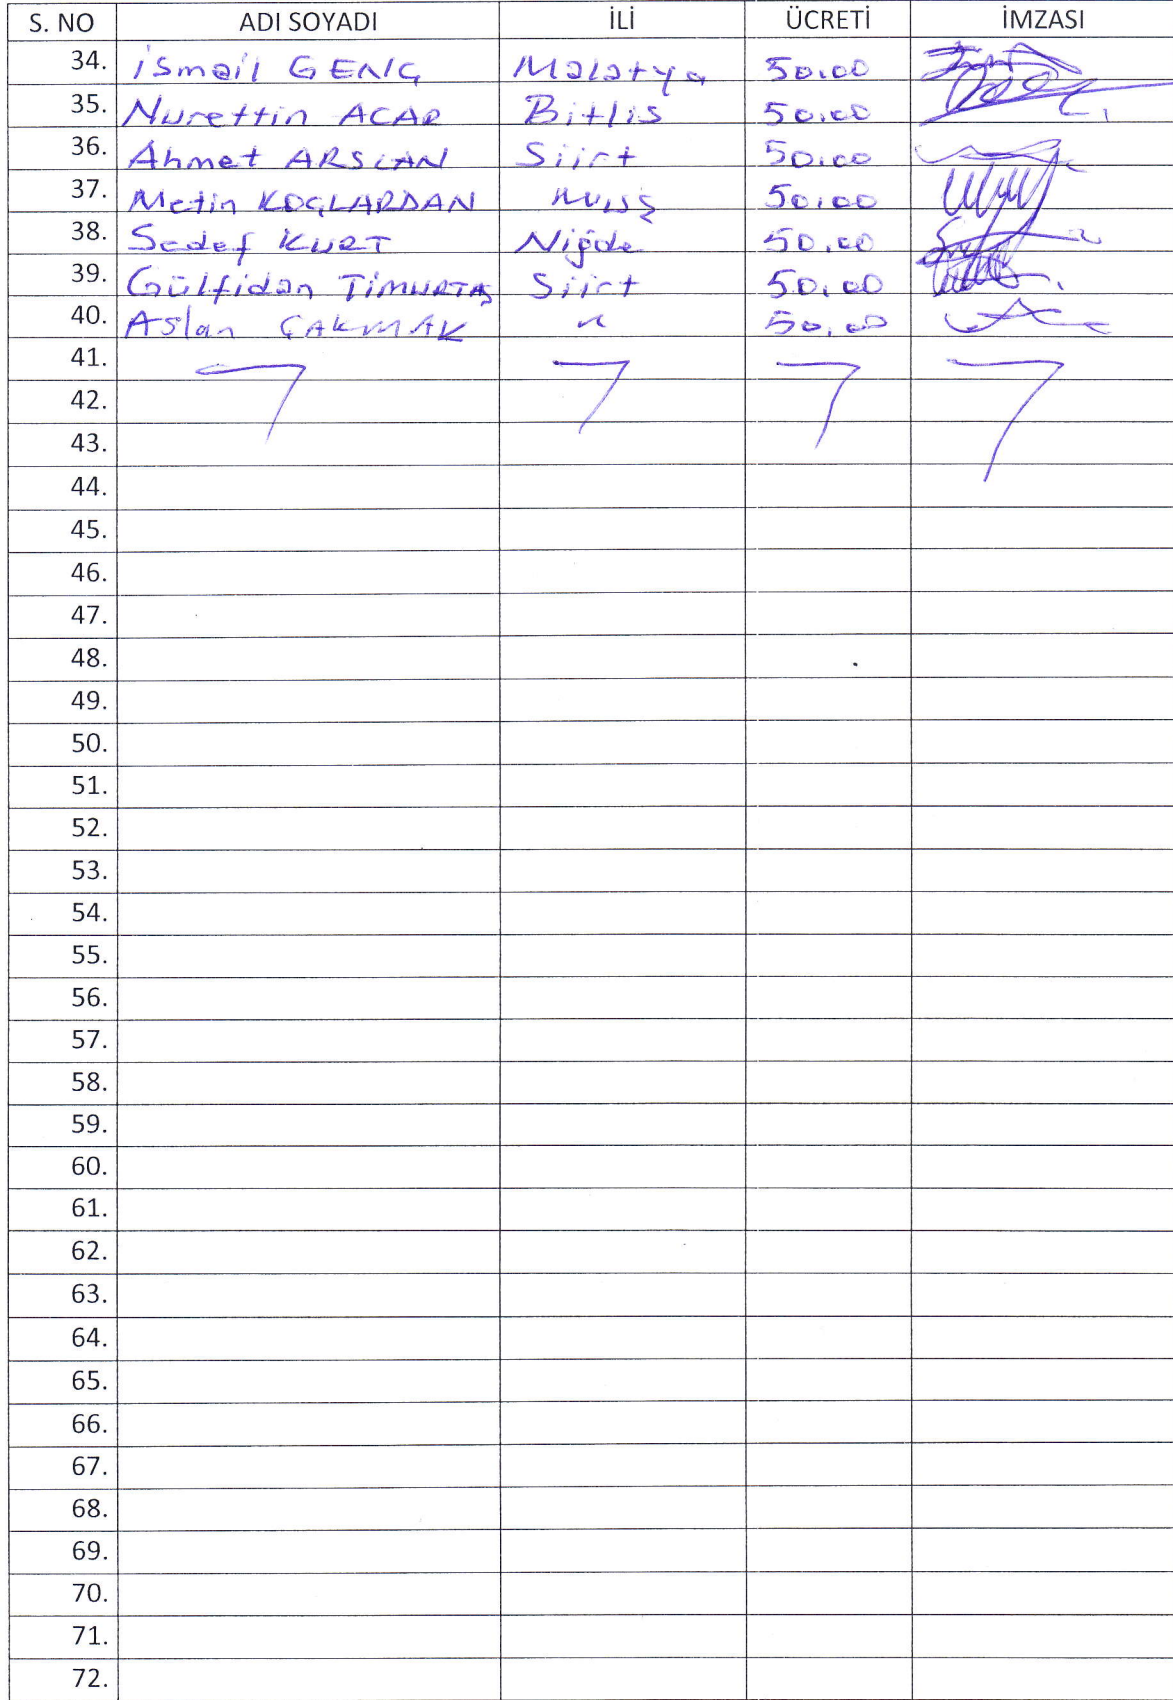 S. NO ADI SOYADI İLİ ÜCRETİ İMZASI
34. İsmail GENÇ Malatya 50,00
35. Nurettin ACAR Bitlis 50,00
36. Ahmet ARSLAN Siirt 50,00
37. Metin KOÇLARDAN Muş 50,00
38. Sedef KURT Niğde 50,00
39. Gülfidan TİMURTAŞ Siirt 50,00
40. Aslan ÇAKMAK " 50,00
41.
42.
43.
44.
45.
46.
47.
48.
49.
50.
51.
52.
53.
54.
55.
56.
57.
58.
59.
60.
61.
62.
63.
64.
65.
66.
67.
68.
69.
70.
71.
72.